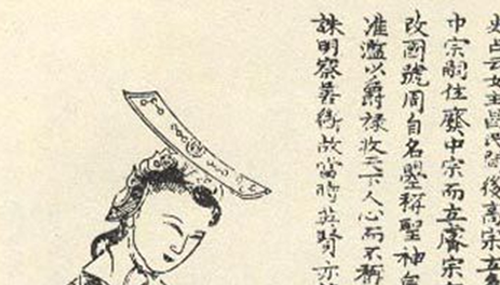 占云女主昌後高宗立
中宗嗣位廢中宗而立睿宗
改國號周自名曌稱聖神皇
濫以爵祿收天下人心而不稱
誅明察善斷故當時英賢亦